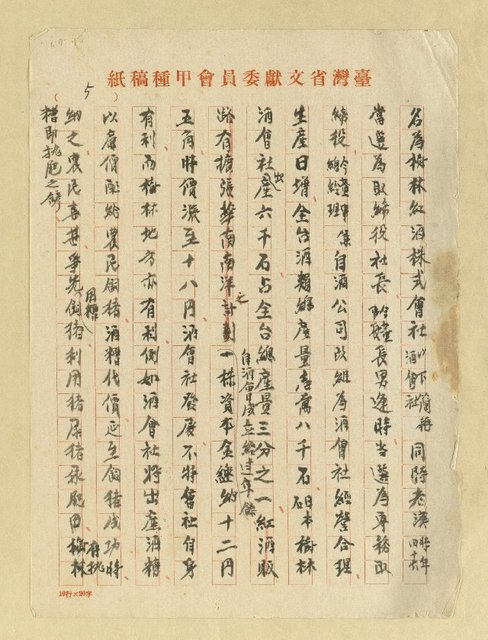 臺灣省文獻委員會甲種稿紙
5
名為樹林紅酒株式會社以下簡稱酒會社同時老漢時年四十六
當選為取締役社長 長男逢時當選為專務取
締役 總經理 係自酒公司改組為酒會社經營合理
生產日增全台酒類總產量 萬八千石 樹林
酒會社出產六千石占全台總產量三分之一紅酒販
路有擴張華南南洋之計劃自酒會社成立經過年餘一株資本金繳納十二円
五角時價漲至十八円酒會社發展不特會社自身
有利而樹林地方亦有利例如酒會社將出產酒糟
以廉價配給農民飼猪酒糟代價延至飼猪成功時
納之農民喜甚爭先用糟飼猪利用猪屎猪尿肥田樹林
糟即挑肥之餘
10行×20字